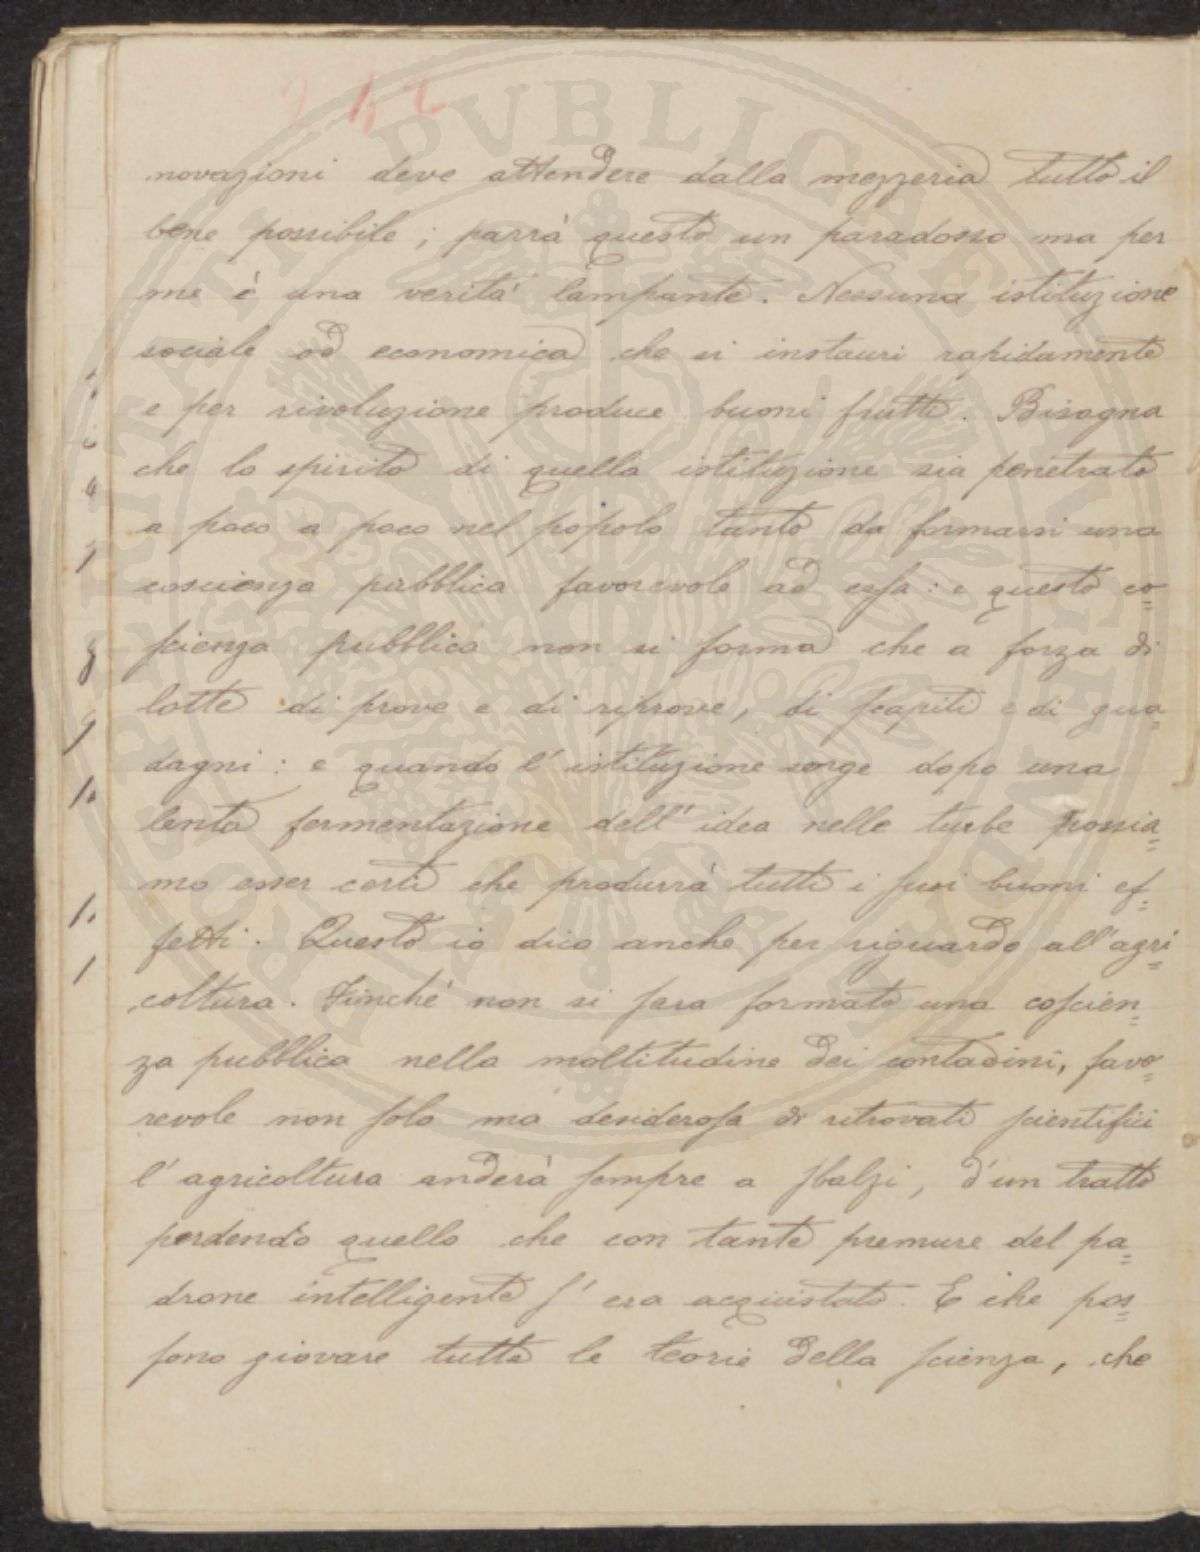 novazioni deve attendere dalla mezzeria tutto il
bene possibile; parrà questo un paradosso ma per
me è una verità lampante. Nessuna istituzione
sociale od economica che si instauri rapidamente
e per rivoluzione produce buoni frutti. Bisogna
che lo spirito di quella istituzione sia penetrato
a poco a poco nel popolo tanto da formarsi una
coscienza pubblica favorevole ad essa: e questa co=
scienza pubblica non si forma che a forza di
lotte di prove e di riprove, di scapiti e di gua=
dagni: e quando l'istituzione sorge dopo una
lenta fermentazione dell'idea nelle turbe possia=
mo esser certi che produrrà tutti i suoi buoni ef=
fetti. Questo io dico anche per riguardo all'agri=
coltura. Finché non si sara formata una coscien=
za pubblica nella moltitudine dei contadini, favo=
revole non solo ma desiderosa di ritrovati scientifici
l'agricoltura anderà sempre a sbalzi, d'un tratto
perdendo quello che con tante premure del pa=
drone intelligente s'era acquistato. E che pos=
sono giovare tutte le teorie della scienza, che